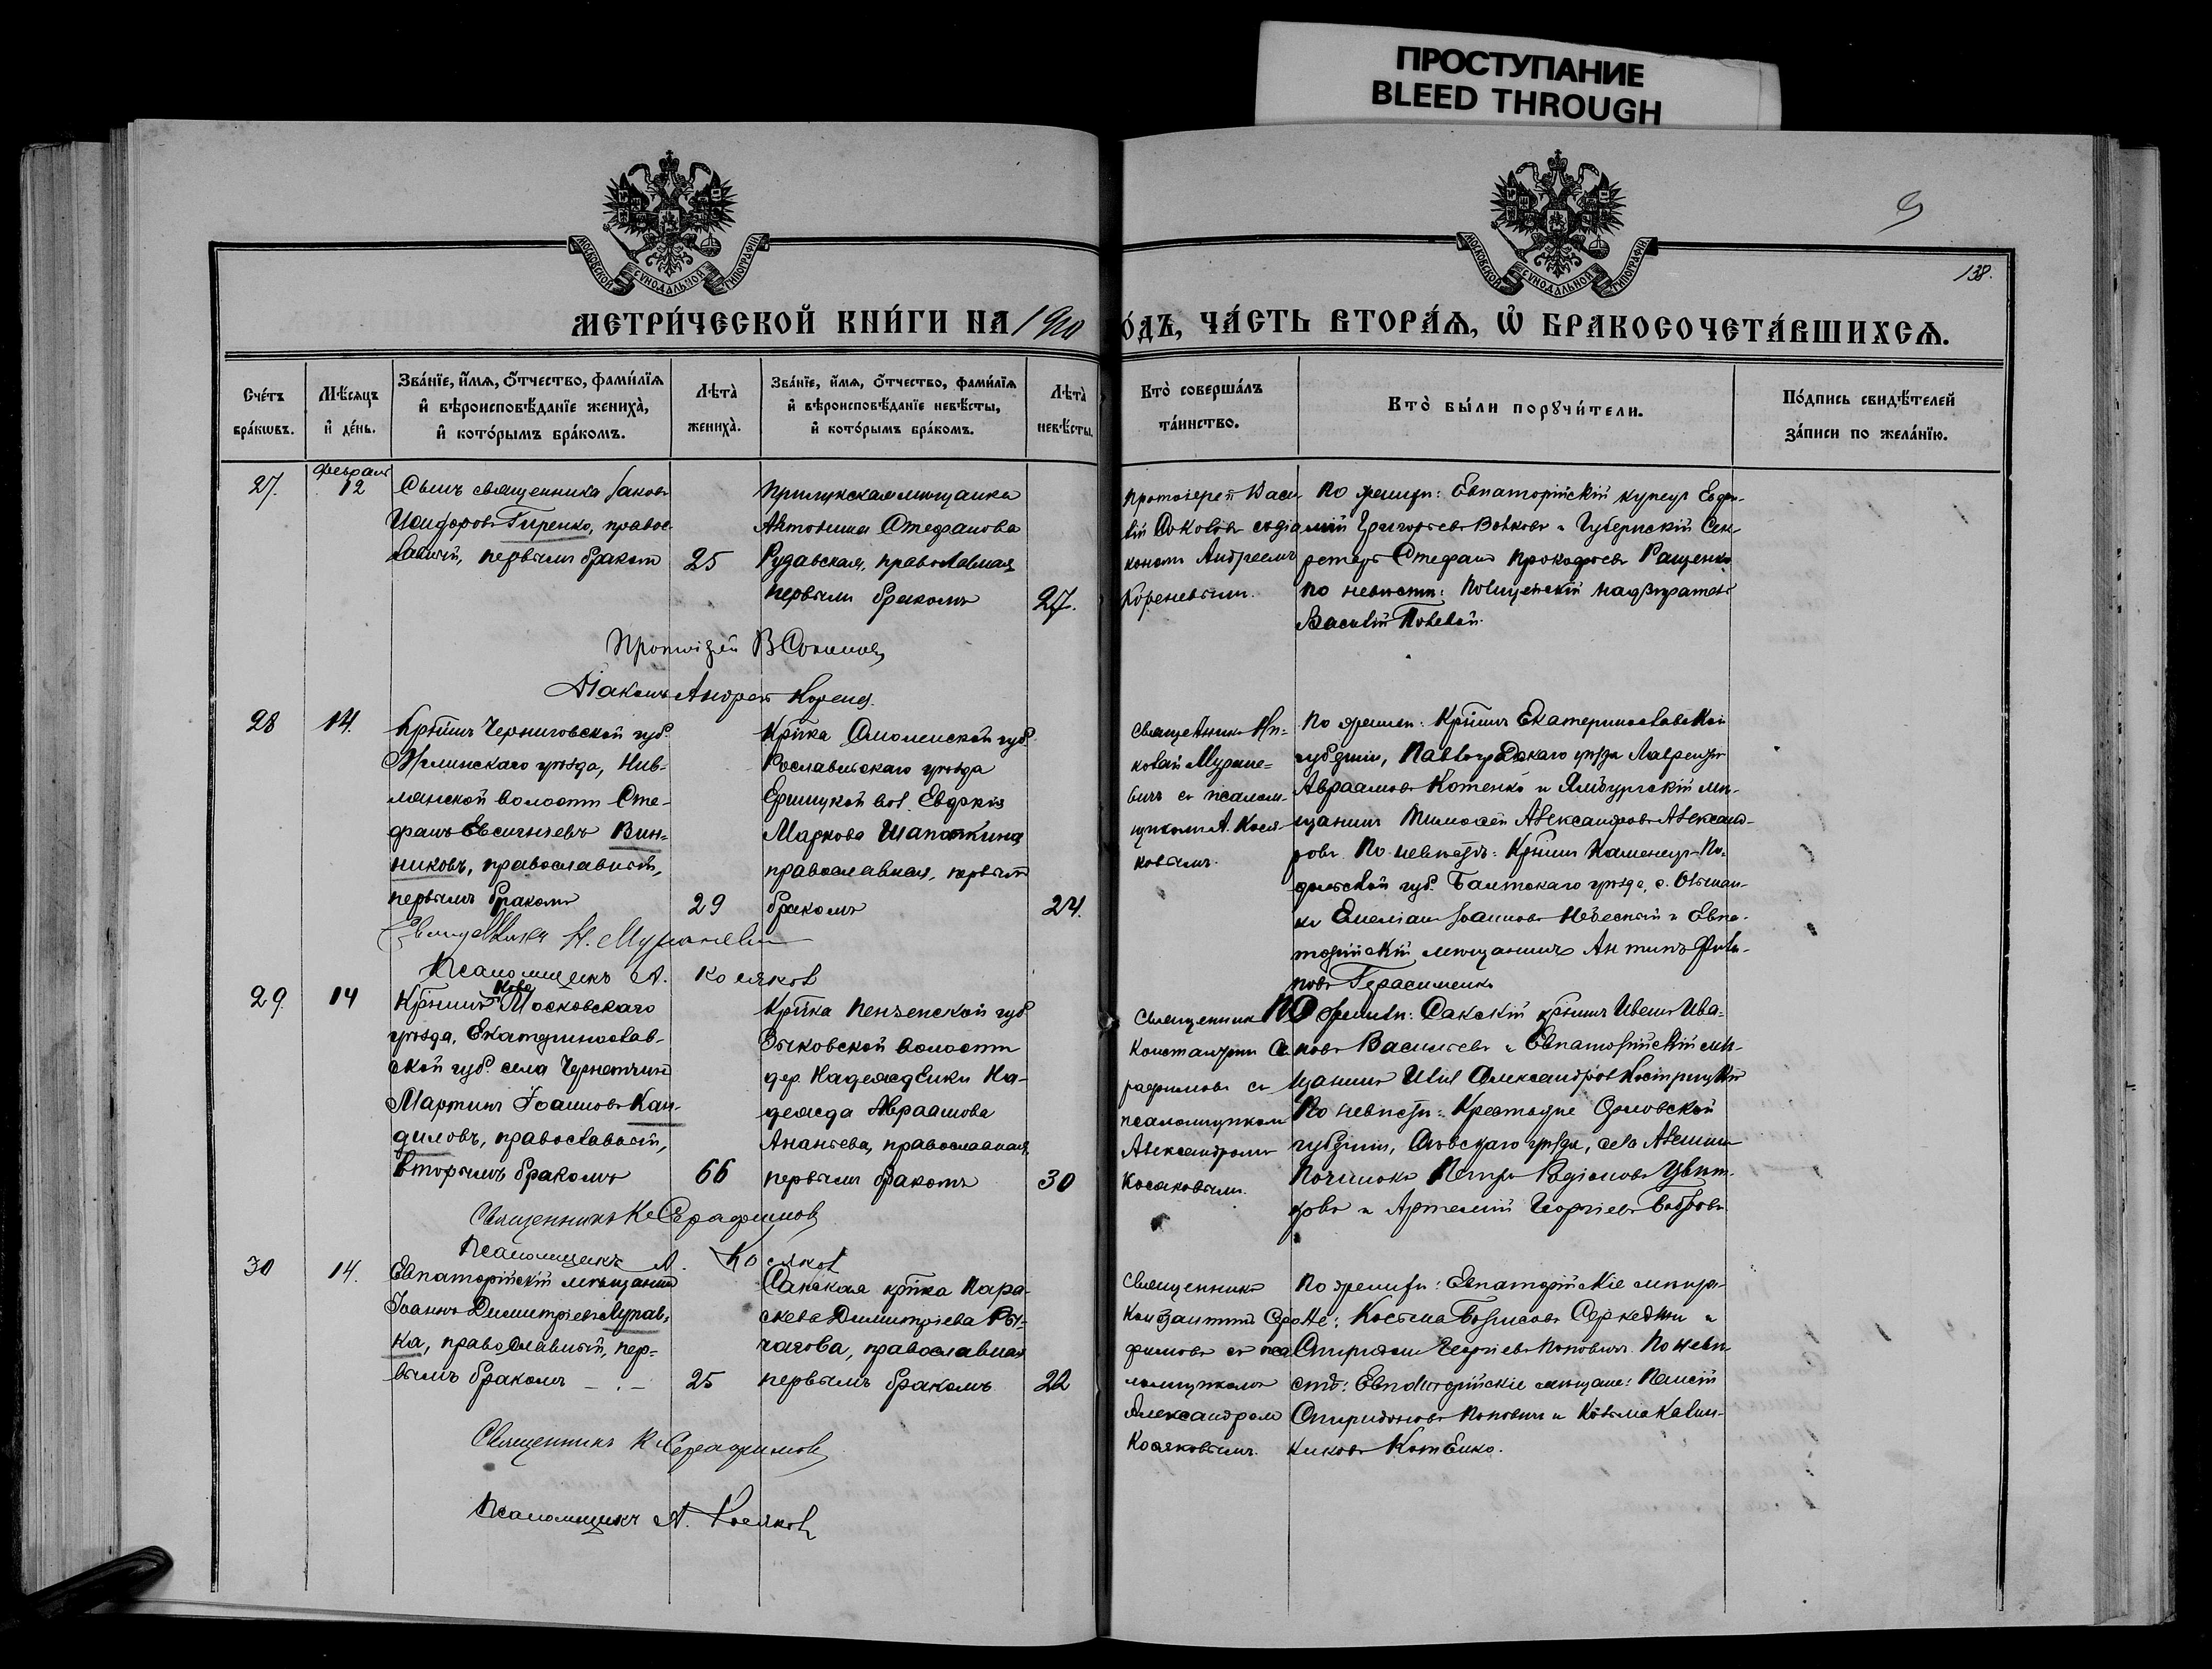 ПРОСТУПАНИЕ
BLEED THROUGH
9
138.
МОСКОВСКОЙ СѴНОДАЛЬНОЙ ТИПОГРАФІИ
МОСКОВСКОЙ СѴНОДАЛЬНОЙ ТИПОГРАФІИ
МЕТРИ́ЧЕСКОЙ КНИ́ГИ НА 1910
О́ДЪ, ЧА́СТЬ ВТОРА́Ѧ, Ѽ БРАКОСОЧЕТА́ВШИХСѦ.
Сче́тъ
бра́кѡвъ.
Мѣ́сяцъ
и҆ де́нь.
Зва́нїе, и҆́мѧ, ѻ҆́тчество, фами́лїѧ
и҆ вѣроисповѣ́данїе жениха̀,
и҆ кото́рымъ бра́комъ.
Лѣта̀
жениха̀.
Зва́нїе, и҆́мѧ, ѻ҆́тчество, фами́лїѧ
и҆ вѣроисповѣ́данїе невѣ́сты,
и҆ кото́рымъ бра́комъ.
Лѣта̀
невѣ́сты.
Кто̀ соверша́лъ
та́инство.
Кто̀ бы́ли порꙋчи́тели.
По́дпись свидѣ́телей
за́писи по жела́нїю.
27.
февраля
12
Сынъ священника Іаковъ
Исидоровъ Гиренко, правос
лавный, первымъ бракомъ
25
Прилукская мѣщанка
Антонина Стефанова
Рудавская, православная
первымъ бракомъ
27.
Протоіерей Васи
лій Соколовъ съ діа
кономъ Андреемъ
Кореневымъ.
По женихѣ: Евпаторійскій купецъ Евфи-
мій Григорьевъ Волковъ и Губернскій Сек-
ретарь Стефанъ Прокофьевъ Ращенко
по невѣстѣ: Полицейскій надзиратель
Василій Полевой.
Протоіерей В Соколовъ
Діаконъ Андрей Кореневъ
28
14.
Кр̃нинъ Черниговской губ.
Мглинскаго уѣзда, Нив-
лянской волости Сте-
фанъ Евсигнѣевъ Вин-
никовъ, православный,
первымъ бракомъ
29
Кр̃нка Смоленской губ.
Рославльскаго уѣзда
Ершицкой вол. Евдокія
Маркова Шапошкина
православная, первымъ
бракомъ
24.
Священникъ Ни-
колай Муране-
вичъ съ псалом-
щикомъ А. Кося-
ковымъ.
По женихѣ: Кр̃нинъ Екатеринославской
губерніи, Павлоградскаго уѣзда Лаврентій
Авраамовъ Котенко и Ямбургскій мѣ-
щанинъ Тимофей Александровъ Александ-
ровъ. По невѣстѣ: Кр̃нинъ Каменецъ-По-
дольской губ. Балтскаго уѣзда, с. Ольшан-
ки Емеліанъ Іоанновъ Небесный и Евпа-
торійскій мѣщанинъ Антипъ Фила-
повъ Герасименко
Священникъ Н. Мураневичъ
Псаломщикъ А. Косяковъ
29.
14
Кр̃нинъ Ново Московскаго
уѣзда, Екатеринослав-
ской губ. села Чернетчино
Мартинъ Іоанновъ Кан-
диловъ, православный,
вторымъ бракомъ
66
Кр̃нка Пензенской губ
Зыковской волости
дер. Надеждѣнки На-
дежда Авраамова
Ананьева, православная
первымъ бракомъ
30
Священникъ
Константинъ Се-
рафимовъ съ
псаломщикомъ
Александромъ
Косяковымъ.
По женихѣ: Сакскій кр̃нинъ Иванъ Ива-
новъ Васильевъ и Евпаторійскій мѣ-
щанинъ Илія Александровъ Кострицкій
По невѣстѣ: Крестьяне Орловской
губерніи, уѣзда, села
Починокъ Петръ Родіоновъ
и Артемій Георгіевъ Бобровъ
Священникъ К Серафимовъ
Псаломщикъ А. Косяковъ
30
14.
Евпаторійскій мѣщанинъ
Іоаннъ Димитріевъ Мурав-
ка, православный, пер-
вымъ бракомъ
25
Сакская кр̃нка Пара-
скева Димитріева Ры-
чагова, православная
первымъ бракомъ
22
Священникъ
Константинъ Сера
фимовъ съ пса
ломщикомъ
Александромъ
Косяковымъ.
По женихѣ: Евпаторійскіе мѣща-
не: Косьма Борисовъ Серкеджи и
Спиридонъ Георгіевъ Поповичъ. По невѣ
стѣ: Евпаторійскіе мѣщане: Паисій
Спиридоновъ Поповичъ и Косьма Калин-
никовъ Котенко.
Священникъ К Серафимовъ
Псаломщикъ А. Косяковъ